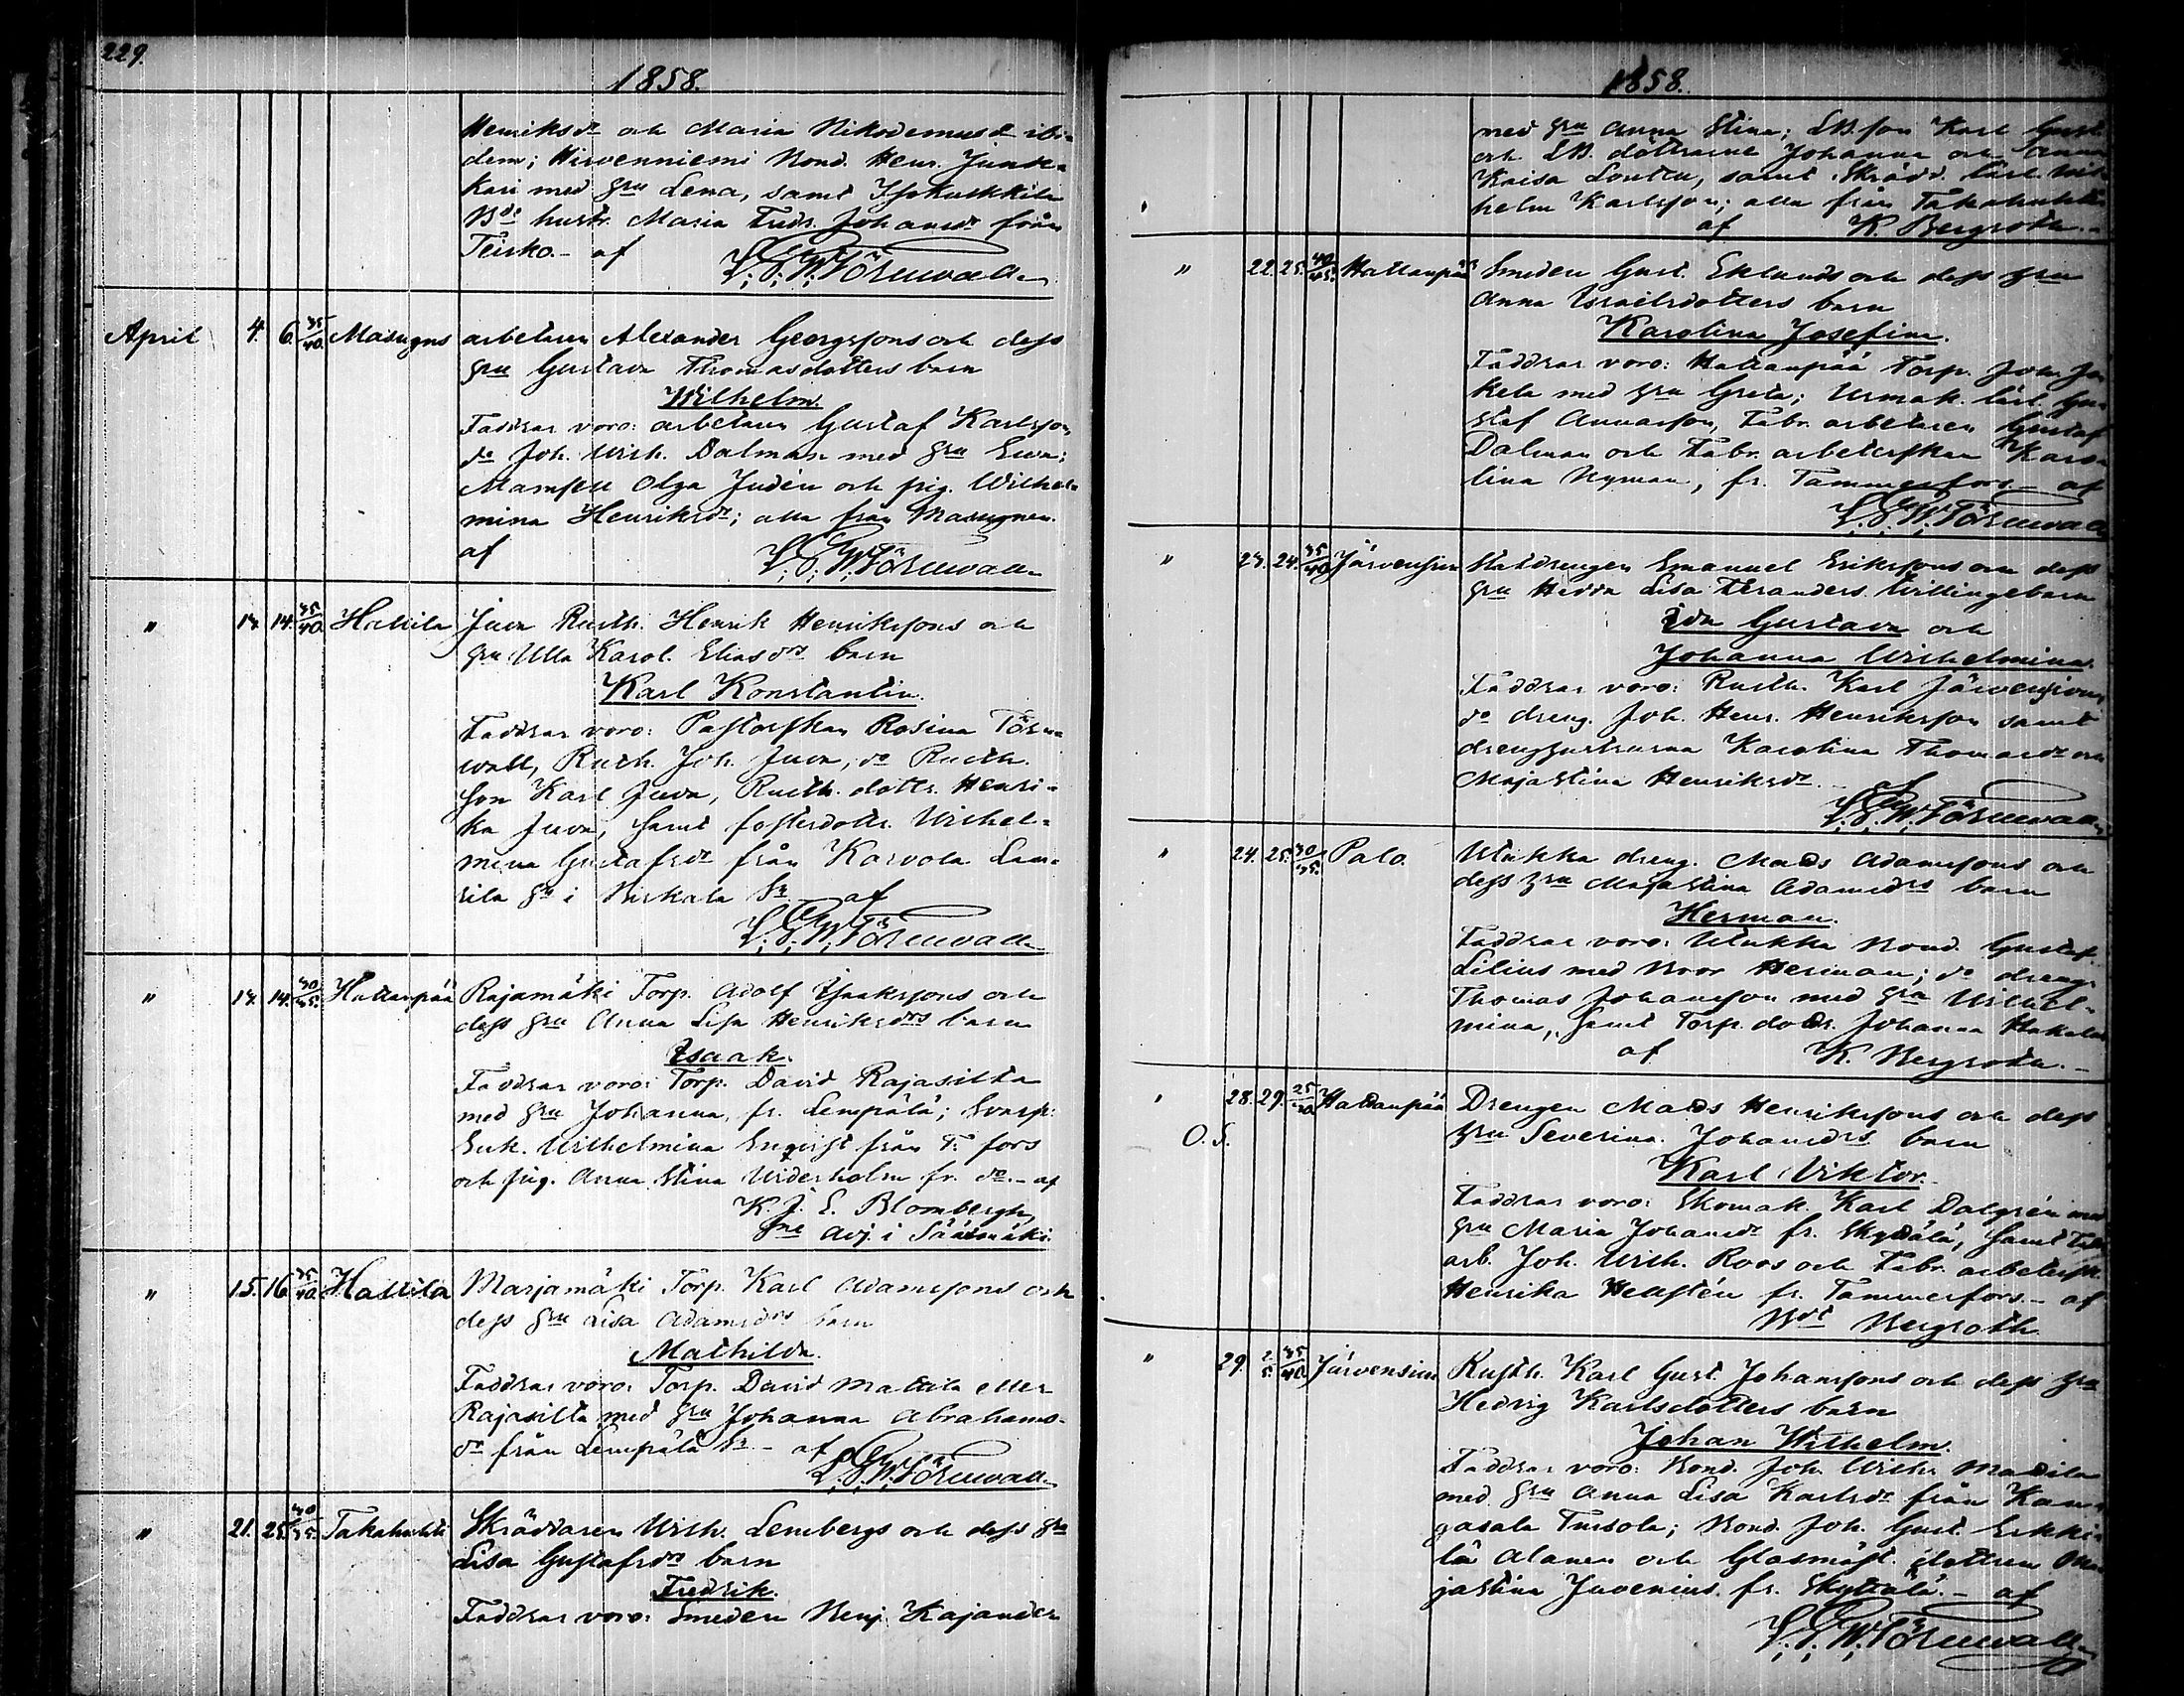 229.
1858.
Henriksdr och Maria Nikodemusdr ibi-
dem; Hirvenniemi Bond. Henr. Junk-
kari med hru Lena, samt
Bds hustr. Maria Fredr. Johansdr från
Teisko. - af L. G. W. Törnwall
April 4. 6. 35/40 Masugns arbetaren Alexander Georgssons och dess
hru Gustava Thomasdotters barn
Wilhelm.
Faddrar voro: arbetaren Gustaf Karlsson,
do Joh. Wilh. Dalman med hru Ewa;
Mamsell Olga Judén och pig. Wilhel-
mina Henriksdr; alla från Masugnen.
af L. G. W. Törnwall
" 14. 14. 35/40 Hatila Juva Rusth. Henrik Henrikssons och
hru Ulla Karol. Eliasdrs barn
Karl Konstantin.
Faddrar voro: Pastorskan Rosina Törn-
wall, Rusth. Joh. Juva, do Rusth.
son Karl Juva, Rusth. dottr. Henri-
ka Juva, samt fosterdottr. Wilhel-
mina Gustafsdr från Korvola
i Birkala Sn af
L. G. W. Törnwall
" 14. 14. 30/35 Hatanpää Rajamäki Torp. Adolf Isakssons och
dess hru Anna Lisa Henriksdrs barn
Isaak.
Faddrar voro: Torp. David Rajasilta
med hru Johanna, fr. Lempälä; Svarf.
Enk. Wilhelmina Enqvist från T. fors
och pig. Anna Stina Widerholm fr. do. - af
K. J. E. Blombergh,
Adj. i Sääxmäki.
" 15. 16. 35/40 Hatila Marjamäki Torp. Karl Adamssons och
dess hru Lisa Adamsdrs barn
Mathilda.
Faddrar voro: Torp. David Mattila eller
Rajasilta med hru Johanna Abrahams-
dr från Lempälä Sn - af
L. G. W. Törnwall
" 21. 25. 30/35 Takahuhti Skräddaren Wilh. Lembergs och dess hru
Lisa Gustafsdrs barn
Fredrik.
Faddrar voro: Smeden Benj. Kajander
1858.
med hru Anna Stina; LB. son Karl Gust.
och LB. döttrarne Johanna och Anna
Kaisa, samt Skrädd. lärl. Wil-
helm Karlsson; alla från Takahuhti
af K. Bergroth. -
" 22. 25. 40/45 Hattanpää Smeden Gust. Eklunds och dess hru
Anna Israelsdotters barn
Karolina Josefina.
Faddrar voro: Hattanpää Torp. Joh.
med hru Greta; Urmak. lärl. Gu-
staf Annasson, Fabr. arbetaren Gustaf
Dalman och Fabr. arbeterskan Karo-
lina Nyman, fr. Tammerfors - af
L. G. W. Törnwall
" 23. 24. 35/40 Järvensivu Statdrengen Emanuel Erikssons och dess
hru Hedda Lisa Feranders Twillingebarn
Ida Gustava och
Johanna Wilhelmina.
Faddrar voro: Rusth. Karl Järvensivu,
do dreng. Joh. Henr. Henriksson samt
drenghustrurna Karolina Thomasdr och
Majastina Henriksdr.
L. G. W. Törnwall
" 24. 25. 30/35 Palo. Ulukka dreng. Matts Adamssons och
dess hru Majastina Adamsdrs barn
Herman.
Faddrar voro: Ulukka Bond. Gustaf
Lilius med Bror Herman; do dreng.
Thomas Johansson med hru Wilhel-
mina, samt Torp. dottr. Johanna Hakala
af K. Bergroth. -
" 28. 29. 25/30 Hattanpää Drengen Matts Henrikssons och dess
O. S. hru Severina Johansdrs barn
Karl Viktor.
Faddrar voro: Skomak. Karl Dalgrén med
hru Maria Johansdr fr. Skyttälä, samt Fabr.
arb. Joh. Wilh. Roos och Fabr. arbetersk.
Henrika Hellstén fr. Tammerfors. - af
Bergroth
" 29. 2/5 35/40 Järvensivu Rusth. Karl Gust. Johanssons och dess hru
Hedvig Karlsdotters barn
Johan Wilhelm.
Faddrar voro: Bond. Joh. Wilh. Mattila
med hru Anna Lisa Karlsdr från Kan-
gasala Tursola; Bond. Joh. Gust. Erkki-
lä Alanen och Glasmäst. dottren Ma-
jastina Juvenius fr. Skyttälä. - af
L. G. W. Törnwall